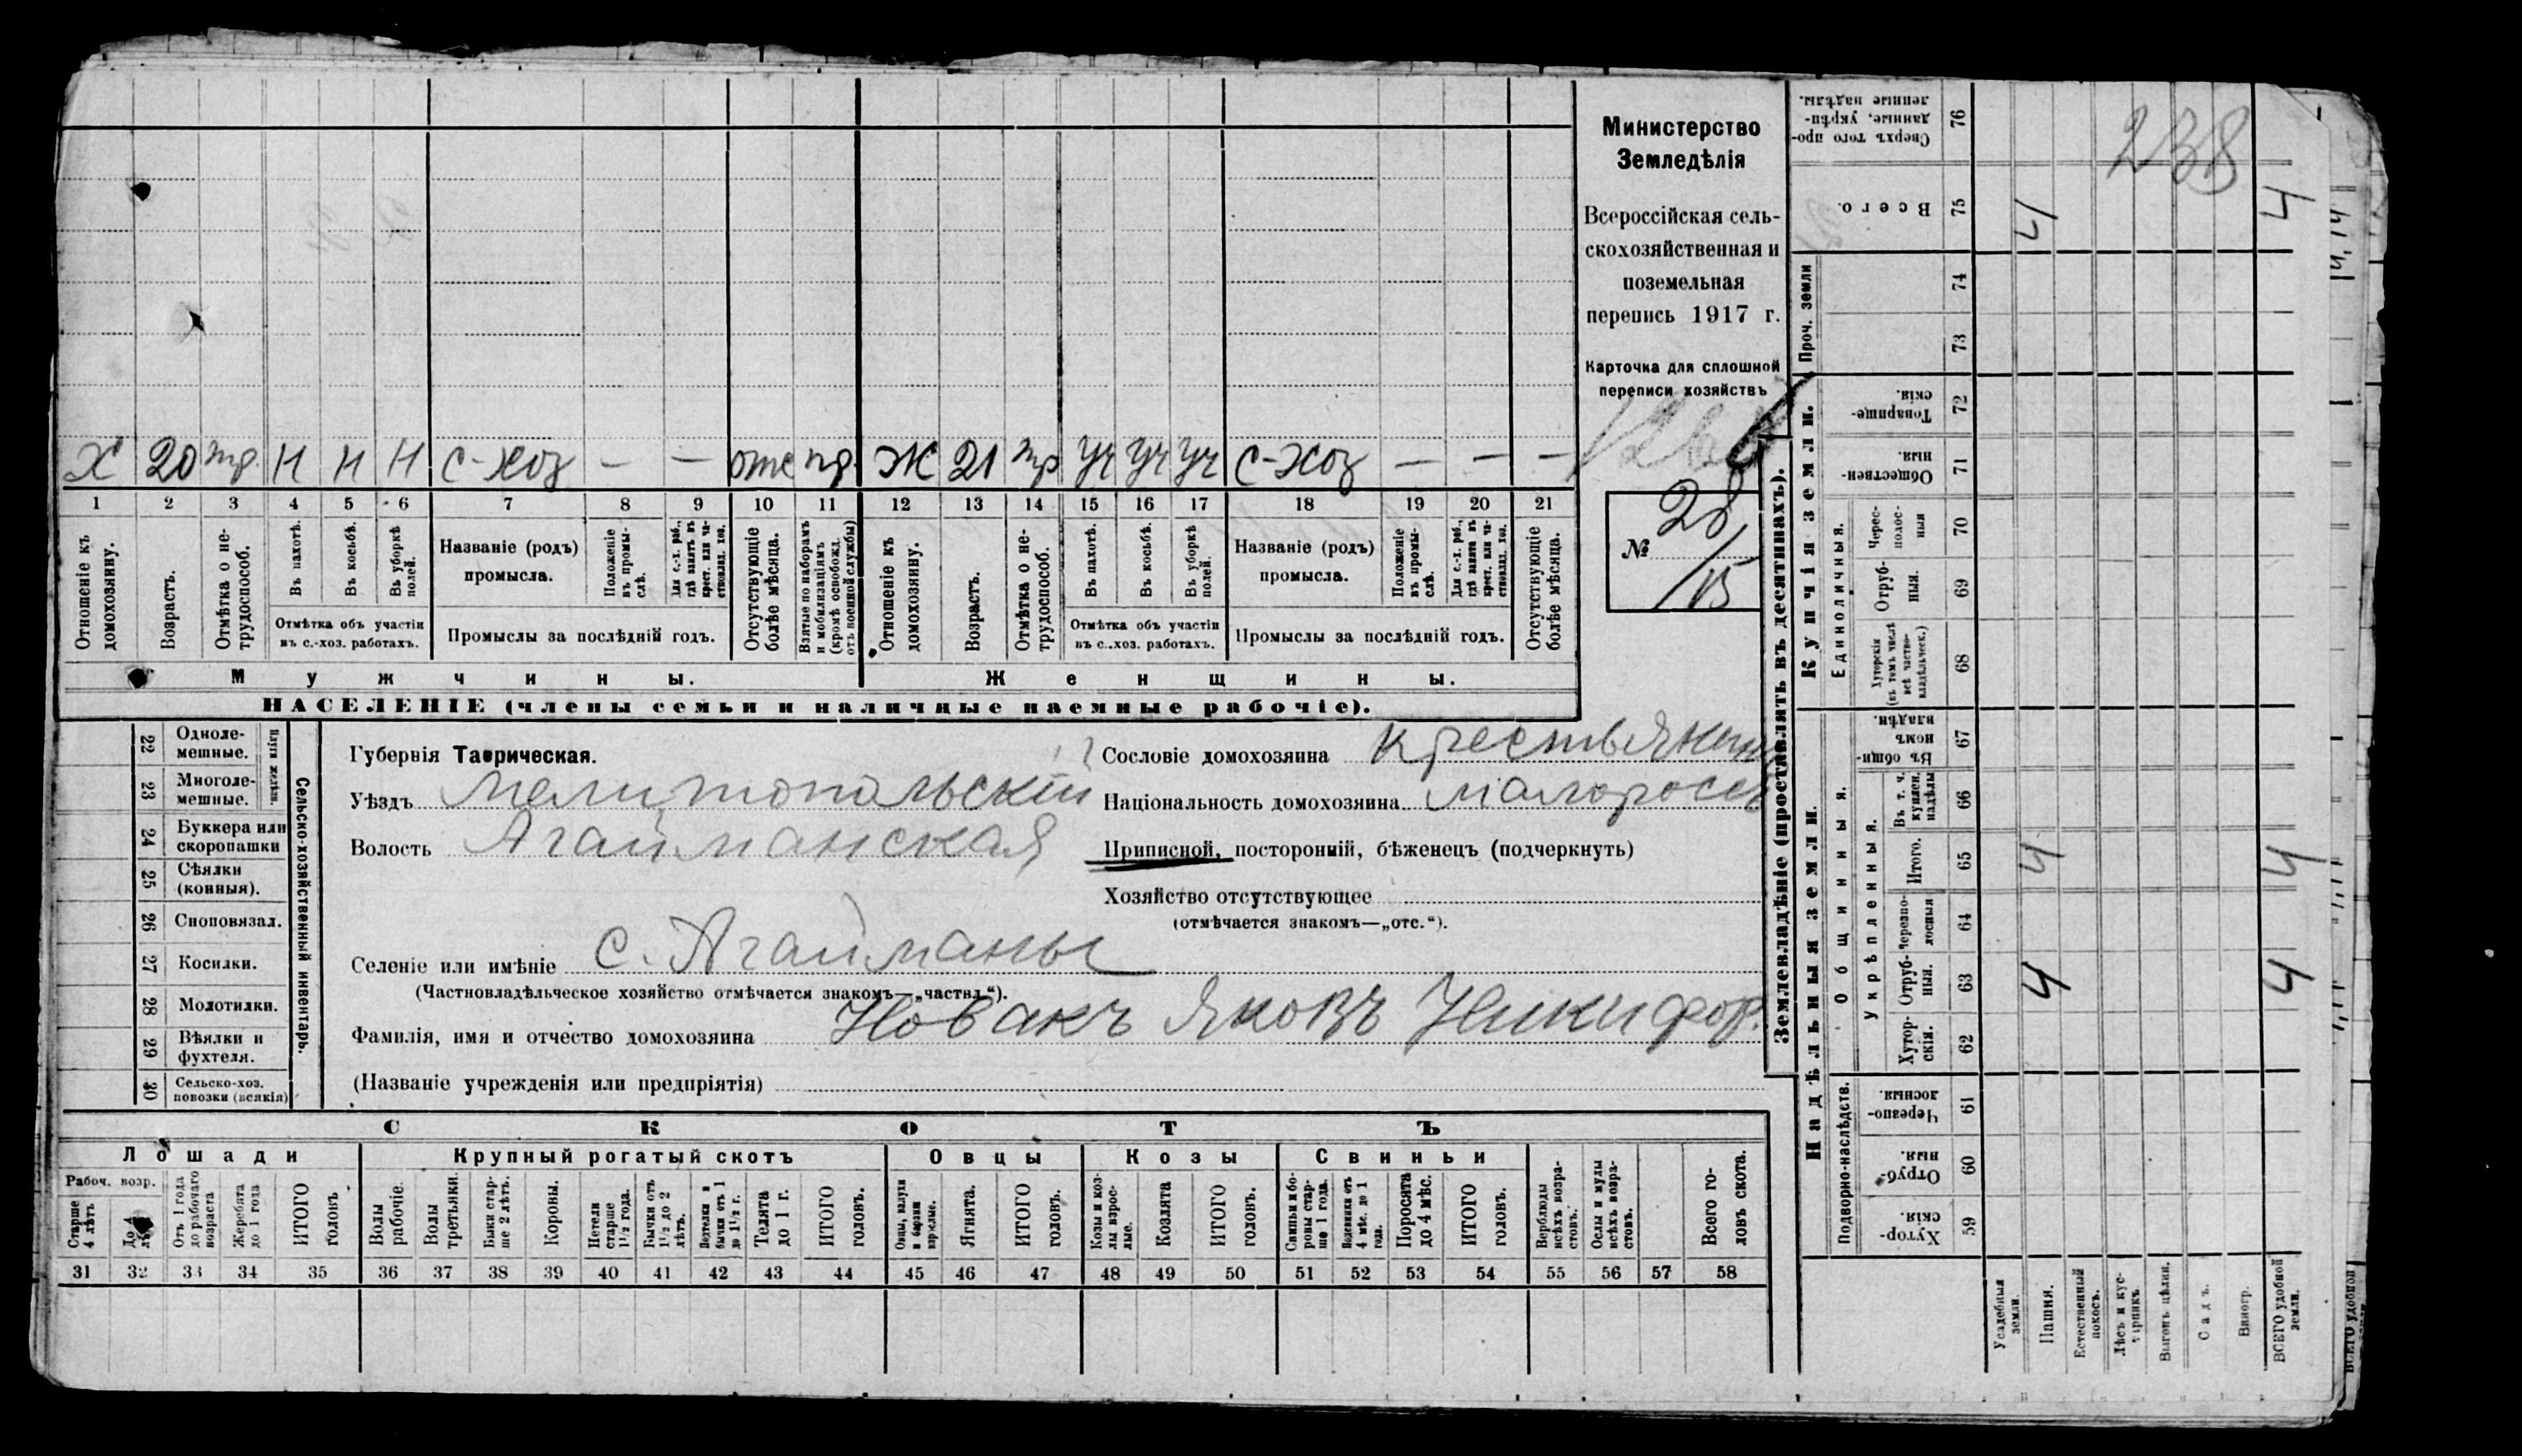 Х 20 тр. Н Н Н С-хоз — — отс пр. Ж 21 тр уч уч уч С-хоз — — —
1 2 3 4 5 6 7 8 9 10 11 12 13 14 15 16 17 18 19 20 21
Отношеніе къ домохозяину.
Возрастъ.
Отмѣтка о не-трудоспособ.
Въ пахотѣ.
Въ косьбѣ.
Въ уборкѣ полей.
Отмѣтка объ участіи
въ с.-хоз. работахъ.
Названіе (родъ)
промысла.
Положеніе въ промы-слѣ.
Для с.-х. раб., гдѣ занятъ въ крест. или ча-стновлад. хоз.
Промыслы за послѣдній годъ.
Отсутствующіе болѣе мѣсяца.
Взятые по наборамъ и мобилизаціямъ (кромѣ освобожд. отъ военной службы)
Отношеніе къ домохозяину.
Возрастъ.
Отмѣтка о не-трудоспособ.
Въ пахотѣ.
Въ косьбѣ.
Въ уборкѣ полей.
Отмѣтка объ участіи
въ с.-хоз. работахъ.
Названіе (родъ)
промысла.
Положеніе въ промы-слѣ.
Для с.-х. раб., гдѣ занята въ крест. или ча-стновлад. хоз.
Промыслы за послѣдній годъ.
Отсутствующіе болѣе мѣсяца.
Мужчины. Женщины.
НАСЕЛЕНІЕ (члены семьи и наличные наемные рабочіе).
Министерство
Земледѣлія
Всероссійская сель-
скохозяйственная и
поземельная
перепись 1917 г.
Карточка для сплошной
переписи хозяйствъ
№ 28/15
Сельско-хозяйственный инвентарь.
Плуги желѣзн.
22 Одноле-мешные.
23 Многоле-мешные.
24 Буккера или скоропашки
25 Сѣялки (конныя).
26 Сноповязал.
27 Косилки.
28 Молотилки.
29 Вѣялки и фухтеля.
30 Сельско-хоз. повозки (всякія)
Губернія Таврическая.
Уѣздъ Мелитопольскій
Волость Агайманская
Селеніе или имѣніе с. Агайманы
(Частновладѣльческое хозяйство отмѣчается знакомъ—„частвл.“).
Фамилія, имя и отчество домохозяина Новакъ Яковъ Никифор.
(Названіе учрежденія или предпріятія)
Сословіе домохозяина Крестьянин
Національность домохозяина малоросс
Приписной, посторонній, бѣженецъ (подчеркнуть)
Хозяйство отсутствующее
(отмѣчается знакомъ—„отс.“).
СКОТЪ
Лошади Крупный рогатый скотъ Овцы Козы Свиньи
Рабоч. возр.
Старше 4 лѣтъ
До 4 лѣтъ
Отъ 1 года до рабочаго возраста
Жеребята до 1 года
ИТОГО головъ
Волы рабочіе.
Волы третьяки.
Быки стар-ше 2 лѣтъ.
Коровы.
Нетели старше 1½ года.
Бычки отъ 1½ до 2 лѣтъ.
Подтелки и бычки отъ 1 до 1½ г.
Телята до 1 г.
ИТОГО головъ.
Овцы, валухи и бараны взрослые.
Ягнята.
ИТОГО головъ.
Козы и коз-лы взрос-лые.
Козлята
ИТОГО головъ.
Свиньи и бо-ровы стар-ше 1 года.
Подсвинки отъ 4 мѣс. до 1 года.
Поросята до 4 мѣс.
ИТОГО головъ.
Верблюды всѣхъ возра-стовъ.
Ослы и мулы всѣхъ возра-стовъ.
Всего го-ловъ скота.
31 32 33 34 35 36 37 38 39 40 41 42 43 44 45 46 47 48 49 50 51 52 53 54 55 56 57 58
Землевладѣніе (проставлять въ десятинахъ).
Надѣльныя земли.
Подворно-наслѣдств.
Хутор-скія. 59
Отруб-ныя. 60
Черезпо-лосныя 61
Общинныя.
Укрѣпленныя.
Хутор-скія. 62
Отруб-ныя. 63 4 4
Черезпо-лосныя 64
Итого. 65 4 4
Въ т. ч. куплен. надѣлы 66
Въ общин-номъ владѣн. 67
Купчія земли.
Единоличныя.
Хуторскія (въ томъ числѣ всѣ частно-владѣльческ.) 68
Отруб-ныя. 69
Черес-полос-ныя 70
Обществен-ныя. 71
Товарище-скія. 72
Проч. земли
73
74
Всего. 75 4 4
Сверхъ того про-данные, укрѣп-ленные надѣлы. 76
238
Усадебныя земли.
Пашня.
Естественный покосъ.
Лѣсъ и кус-тарникъ.
Выгонъ цѣлин.
Садъ.
Виногр.
ВСЕГО удобной земли.
ВСЕГО удобной